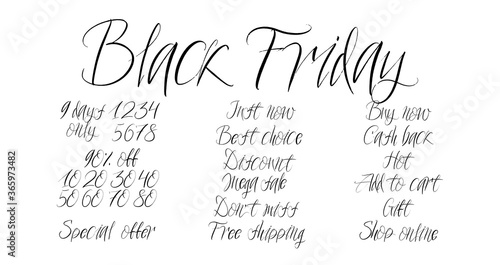 Black Friday
9 days 1234
only 5678
90% off
10 20 30 40
50 60 70 80
Special offer
Just now
Best choice
Discount
Mega sale
Don't miss
Free shipping
Buy now
Cash back
Hot
Add to cart
Gift
Shop online
Adobe Stock | #365973482